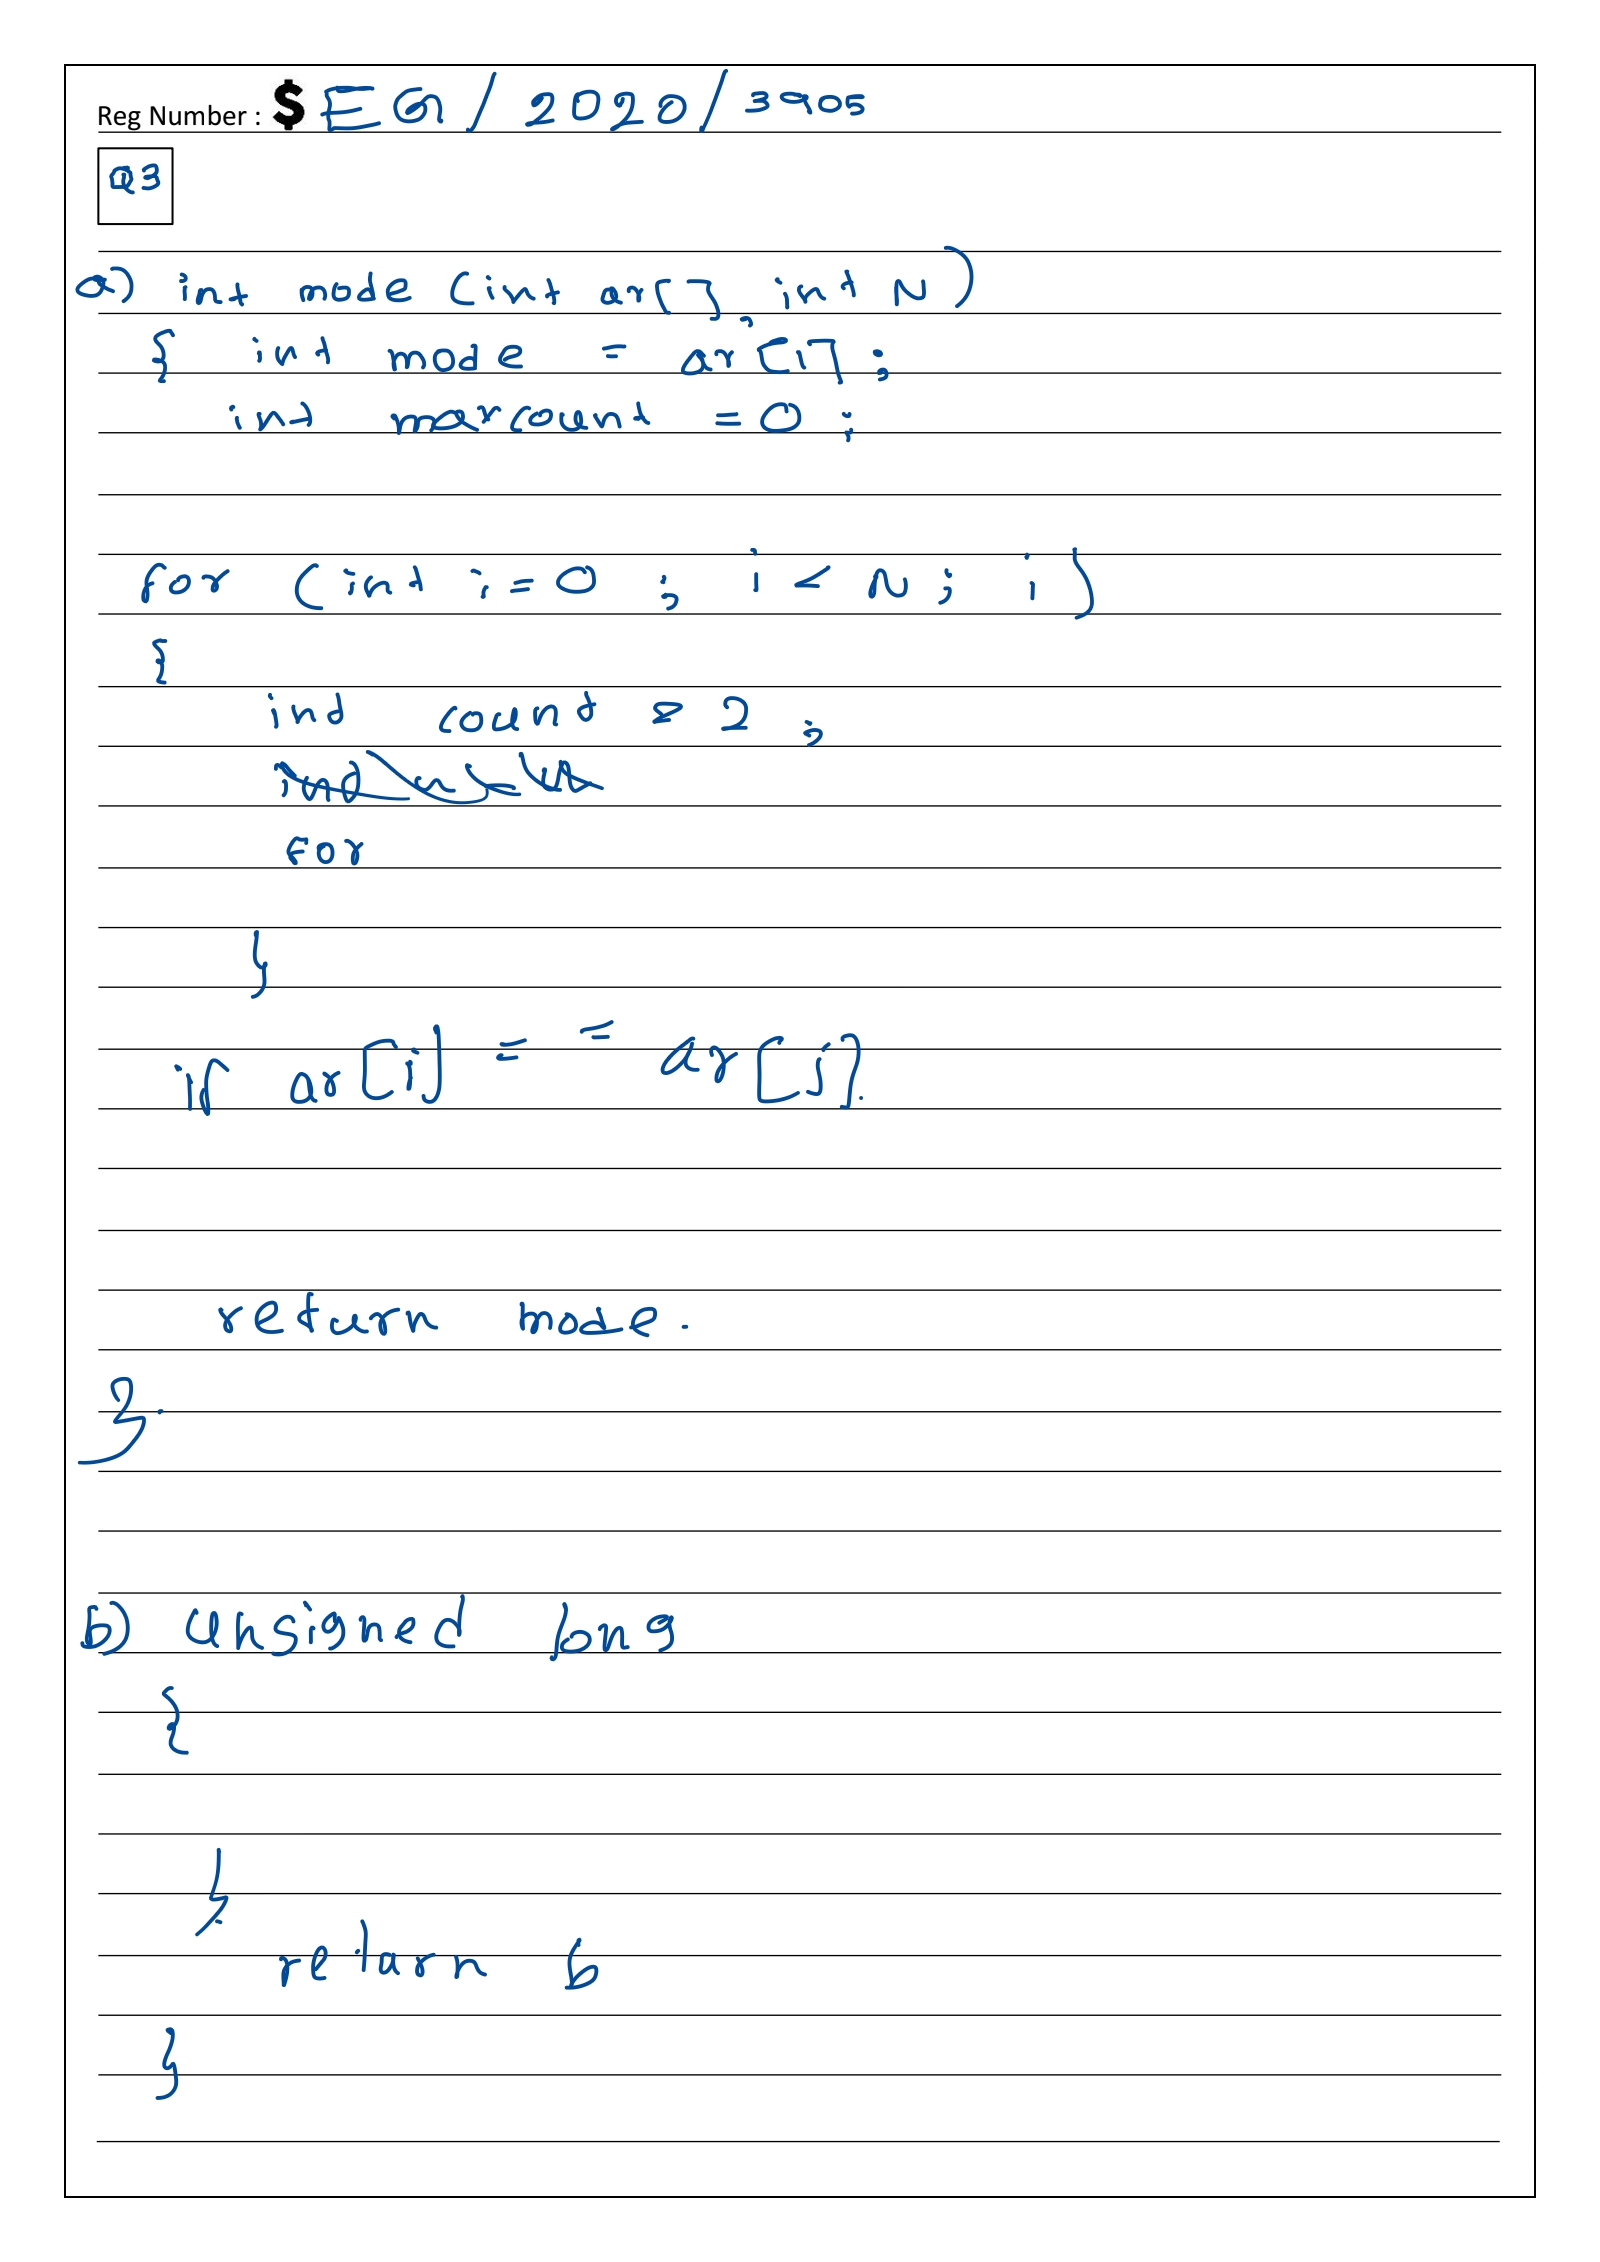 Reg Number : $ EG / 2020 / 3905
Q3
a) int mode (int ar[], int N)
{ int mode = ar[i];
int maxcount = 0;
for (int i = 0 ; i < N ; i)
{
int count = 2 ;
for
}
if ar[i] = = ar[j].
return mode.
}.
b) unsigned long
{
}.
return b
}